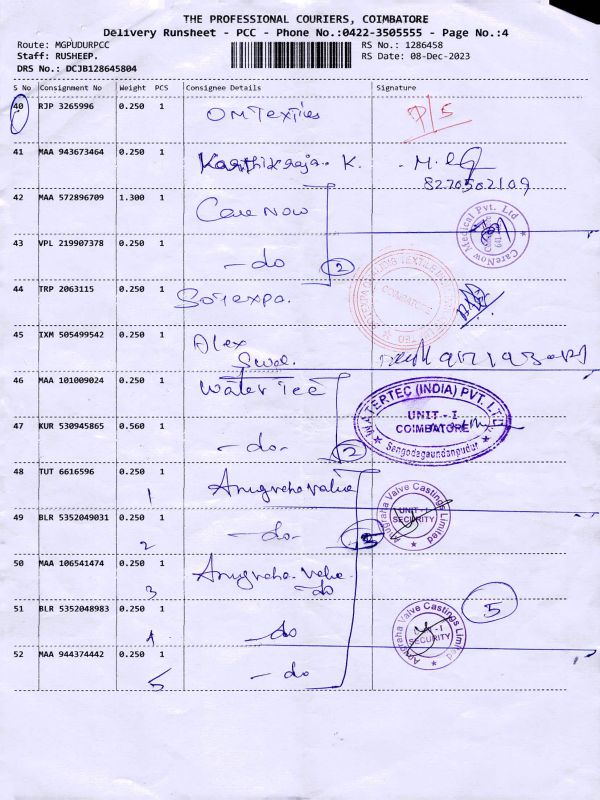 THE PROFESSIONAL COURIERS, COIMBATORE
Delivery Runsheet - PCC - Phone No.:0422-3505555 - Page No.:4
Route: MGPUDURPCC RS No.: 1286458
Staff: RUSHEEP. RS Date: 08-Dec-2023
DRS No.: DCJB128645804
S No Consignment No Weight PCS Consignee Details Signature
40 RJP 3265996 0.250 1 OM Textiles P/S
41 MAA 943673464 0.250 1 Karthikraja. K.
8270502109
42 MAA 572896709 1.300 1 Care Now
CareNow Medical Pvt. Ltd
43 VPL 219907378 0.250 1 - do 2
44 TRP 2063115 0.250 1
COIMBATORE
45 IXM 505499542 0.250 1 Alex
46 MAA 101009024 0.250 1 Water Tec
WATERTEC (INDIA) PVT. LTD.
UNIT - I
COIMBATORE
Sengodagaundanpudur
47 KUR 530945865 0.560 1 - do. 2
48 TUT 6616596 0.250 1 Anugraha valve
1
Anugraha Valve Castings Limited
UNIT - I
SECURITY
49 BLR 5352049031 0.250 1 - do-
2
50 MAA 106541474 0.250 1 Anugraha. valve.
3 do
51 BLR 5352048983 0.250 1 - do 5
4
Anugraha Valve Castings Limited
UNIT - I
SECURITY
52 MAA 944374442 0.250 1 - do
5